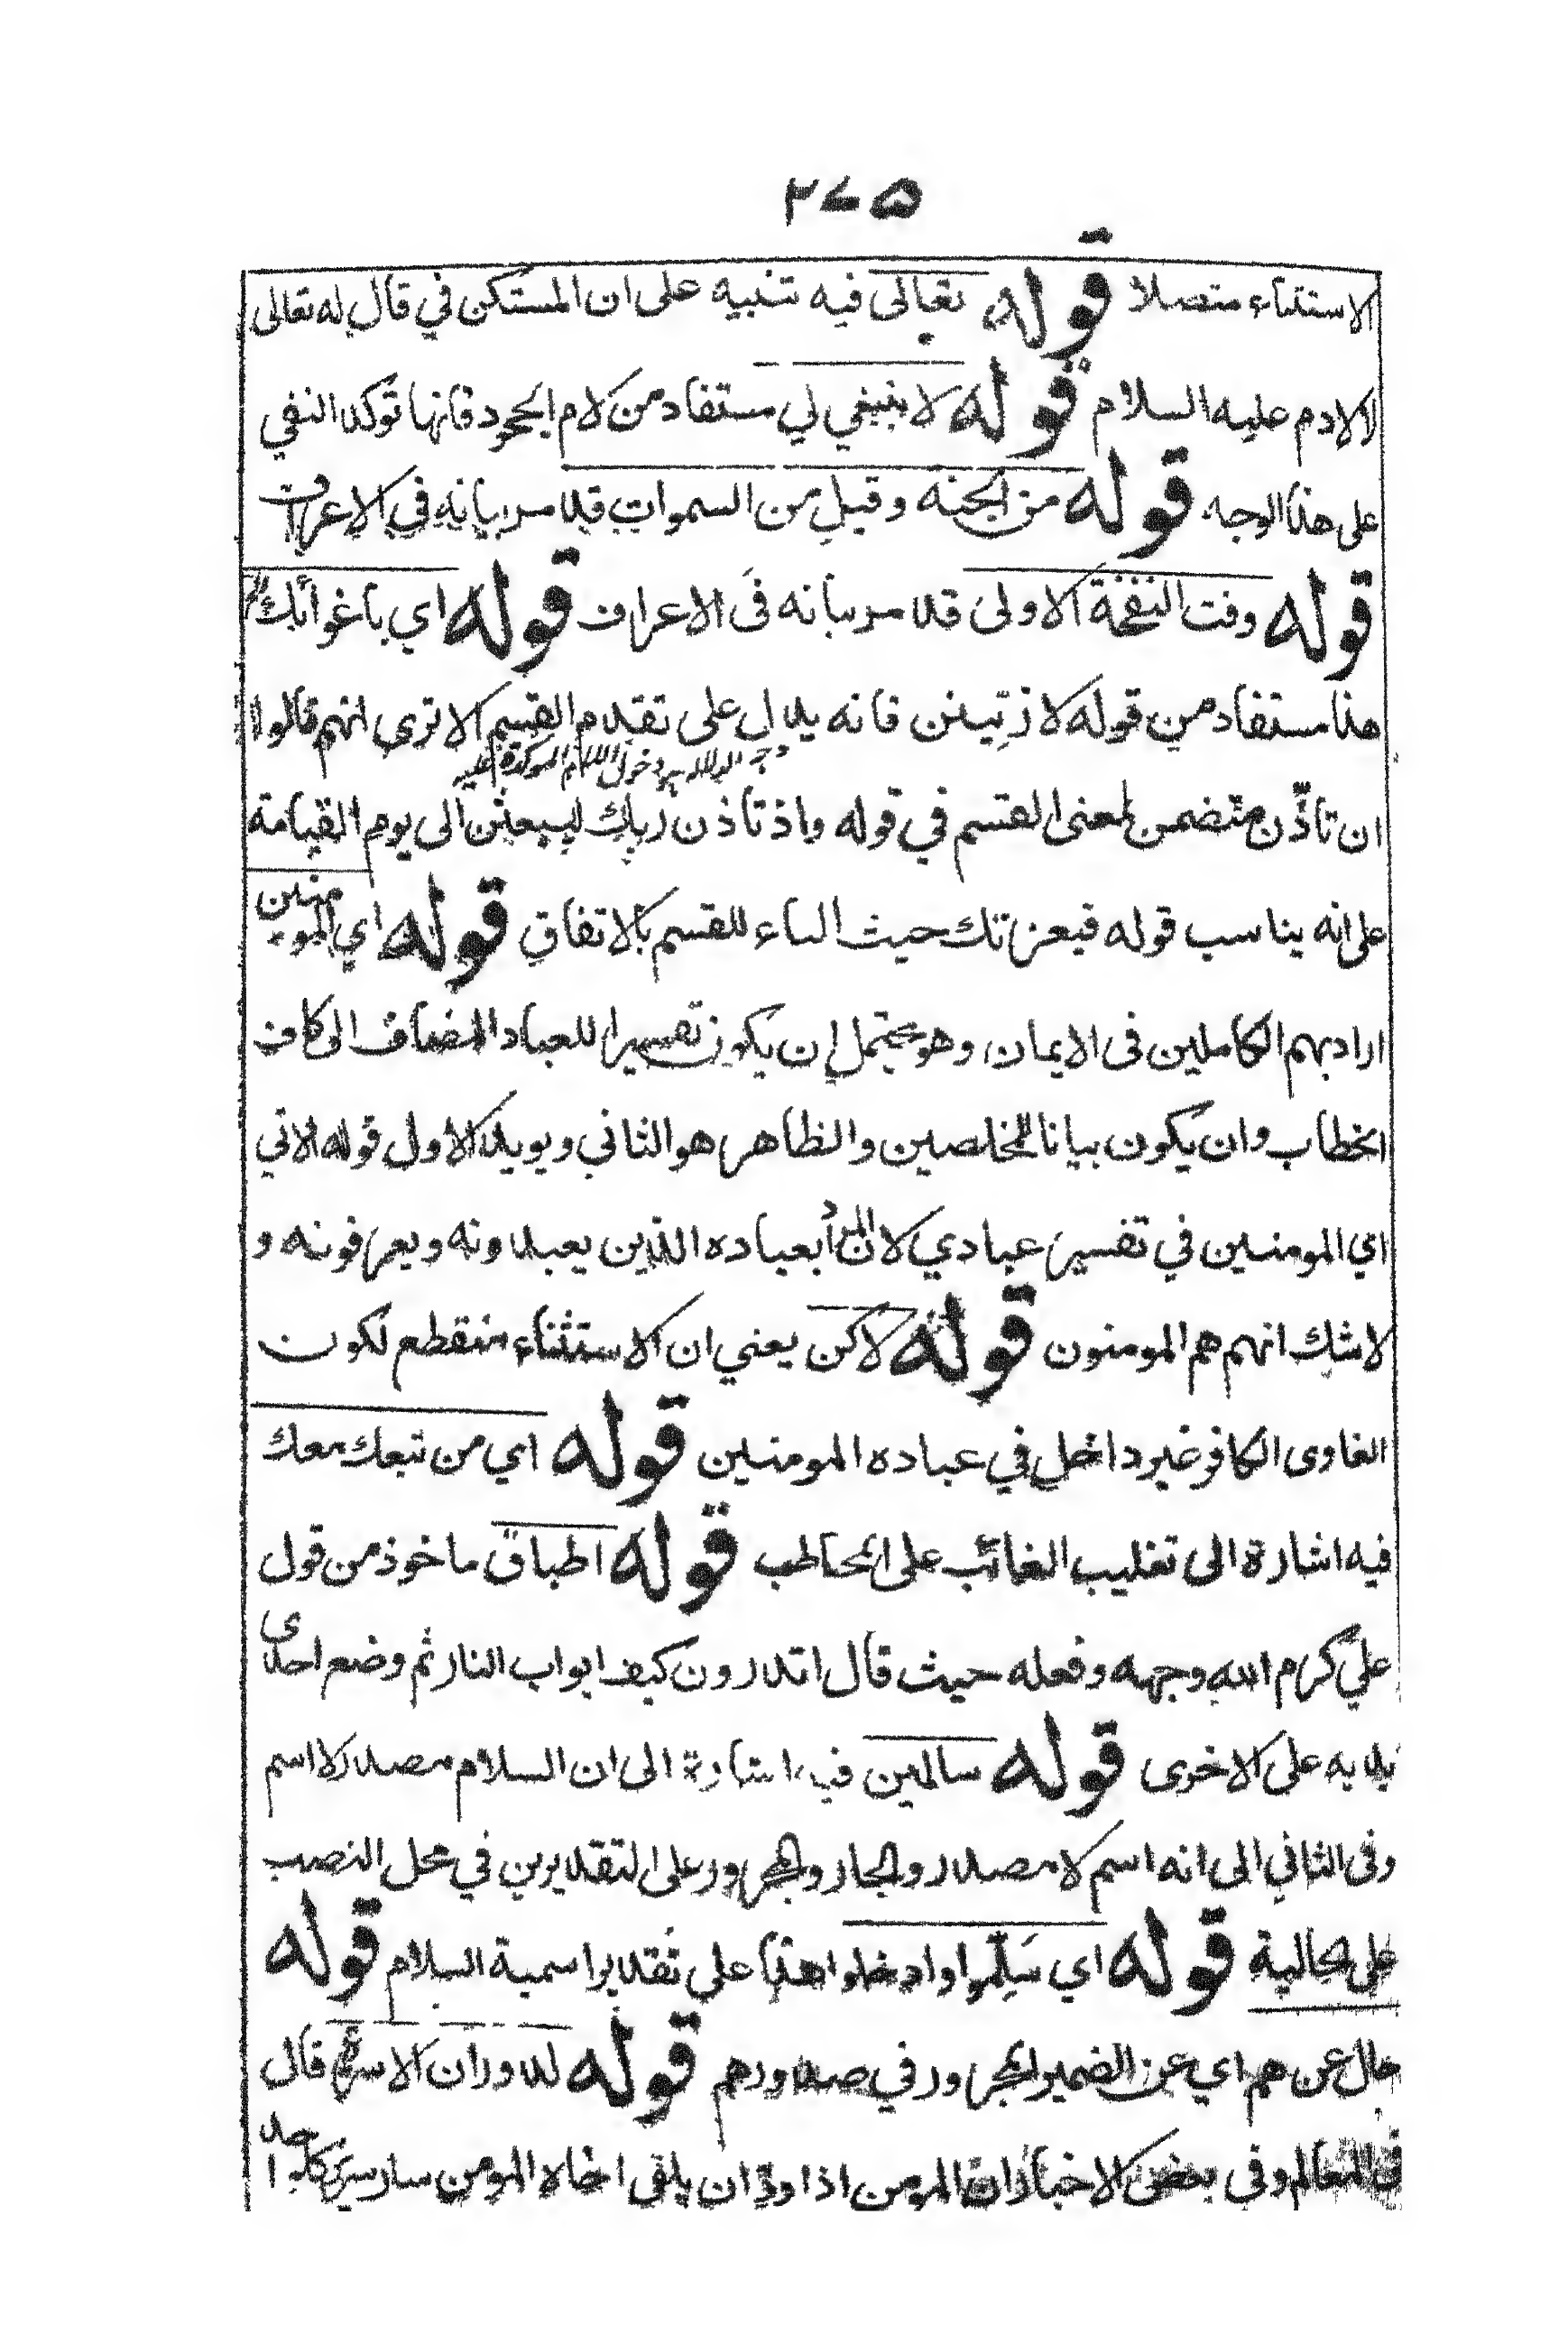 ٢٧٥
الاستثناء متصلا قوله تعالى فيه تنبيه على ان المستكن في قال لله تعالى
لا لادم عليه السلام قوله لا ينبغي لي مستفاد من لام الجحود فانها توكد النفي
على هذا الوجه قوله من الجنة وقيل من السموات قد مر بيانه في الاعراف
قوله وقت النفخة الاولى قد مر بيانه فى الاعراف قوله اي باغوائك
هذا مستفاد من قوله لازينن فانه يدل على تقدم القسم الا ترى انهم قالوا
وجه الدلالة دخول اللام الموكدة عليه
ان تاذن متضمن لمعنى القسم في قوله واذ تاذن ربك ليبعثن الى يوم القيامة
على انه يناسب قوله فبعزتك حيث الباء للقسم بالاتفاق قوله اي المومنين
اراد بهم الكاملين فى الايمان وهو يحتمل ان يكون تفسيرا للعباد المضاف الى كاف
الخطاب وان يكون بيانا للمخلصين والظاهر هو الثاني ويويد الاول قوله الاتي
اي المومنين في تفسير عبادي لان المراد بعباده الذين يعبدونه ويعرفونه و
لا شك انهم هم المومنون قوله لاكن يعني ان الاستثناء منقطع لكون
الغاوى الكافر غير داخل في عباده المومنين قوله اي من تبعك معك
فيه اشارة الى تغليب الغائب على المخاطب قوله اطباق ماخوذ من قول
علي كرم الله وجهه وفعله حيث قال اتدرون كيف ابواب النار ثم وضع احدى
يديه على الاخرى قوله سالمين فيه اشارة الى ان السلام مصدر لا اسم
وفى الثاني الى انه اسم لا مصدر والجار والمجرور على التقديرين في محل النصب
على الحالية قوله اي سلموا وادخلوا هذا على تقدير اسمية السلام قوله
حال عن هم اي عن الضمير المجرور في صدورهم قوله لدوران الاسرة قال
فى المعالم وفى بعض الاخبار ان المومن اذا ود ان يلقى اخاه المومن سار سرير كل واحد